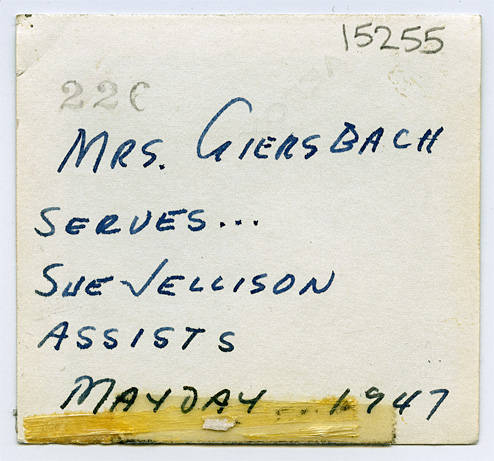 15255
220
MRS. GIERSBACH
SERVES...
SUE JELLISON
ASSISTS
MAYDAY...1947